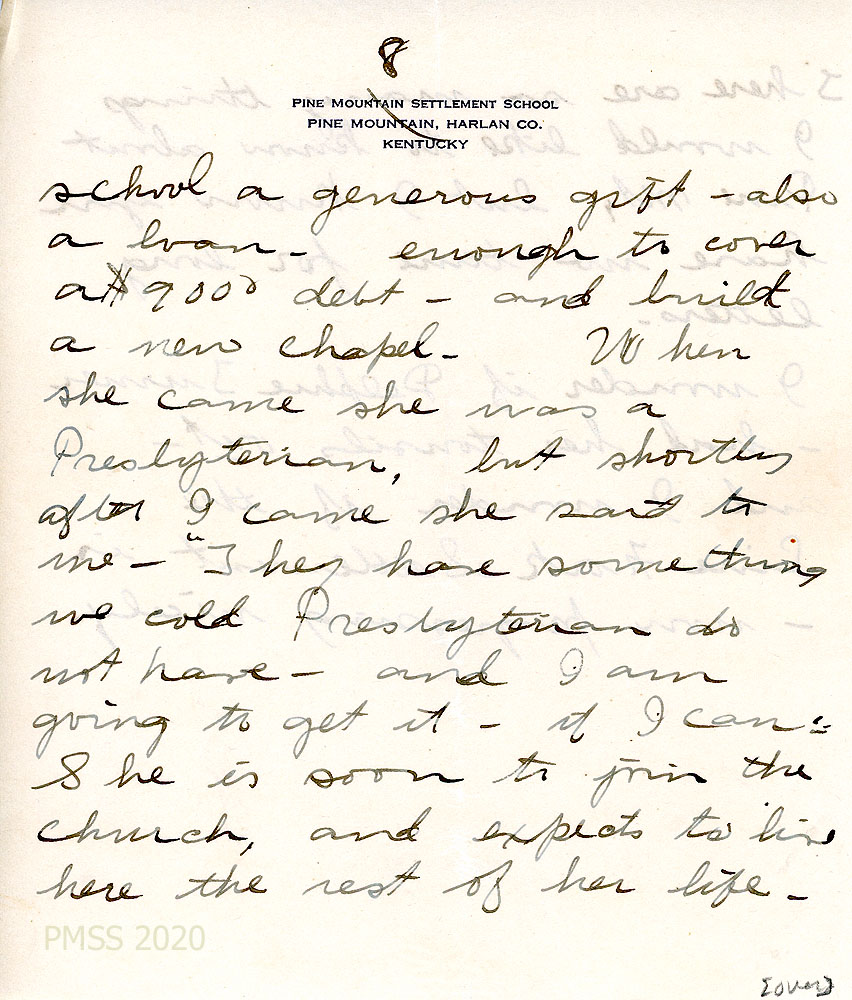 8
PINE MOUNTAIN SETTLEMENT SCHOOL
PINE MOUNTAIN, HARLAN CO.
KENTUCKY
school a generous gift – also
a loan – enough to cover
a $9000 debt – and build
a new chapel – When
she came she was a
Presbyterian, but shortly
after I came she said to
me – "They have something
we cold Presbyterian do
not have – and I am
going to get it – if I can."
She is soon to join the
church, and expects to live
here the rest of her life –
PMSS 2020
[over]